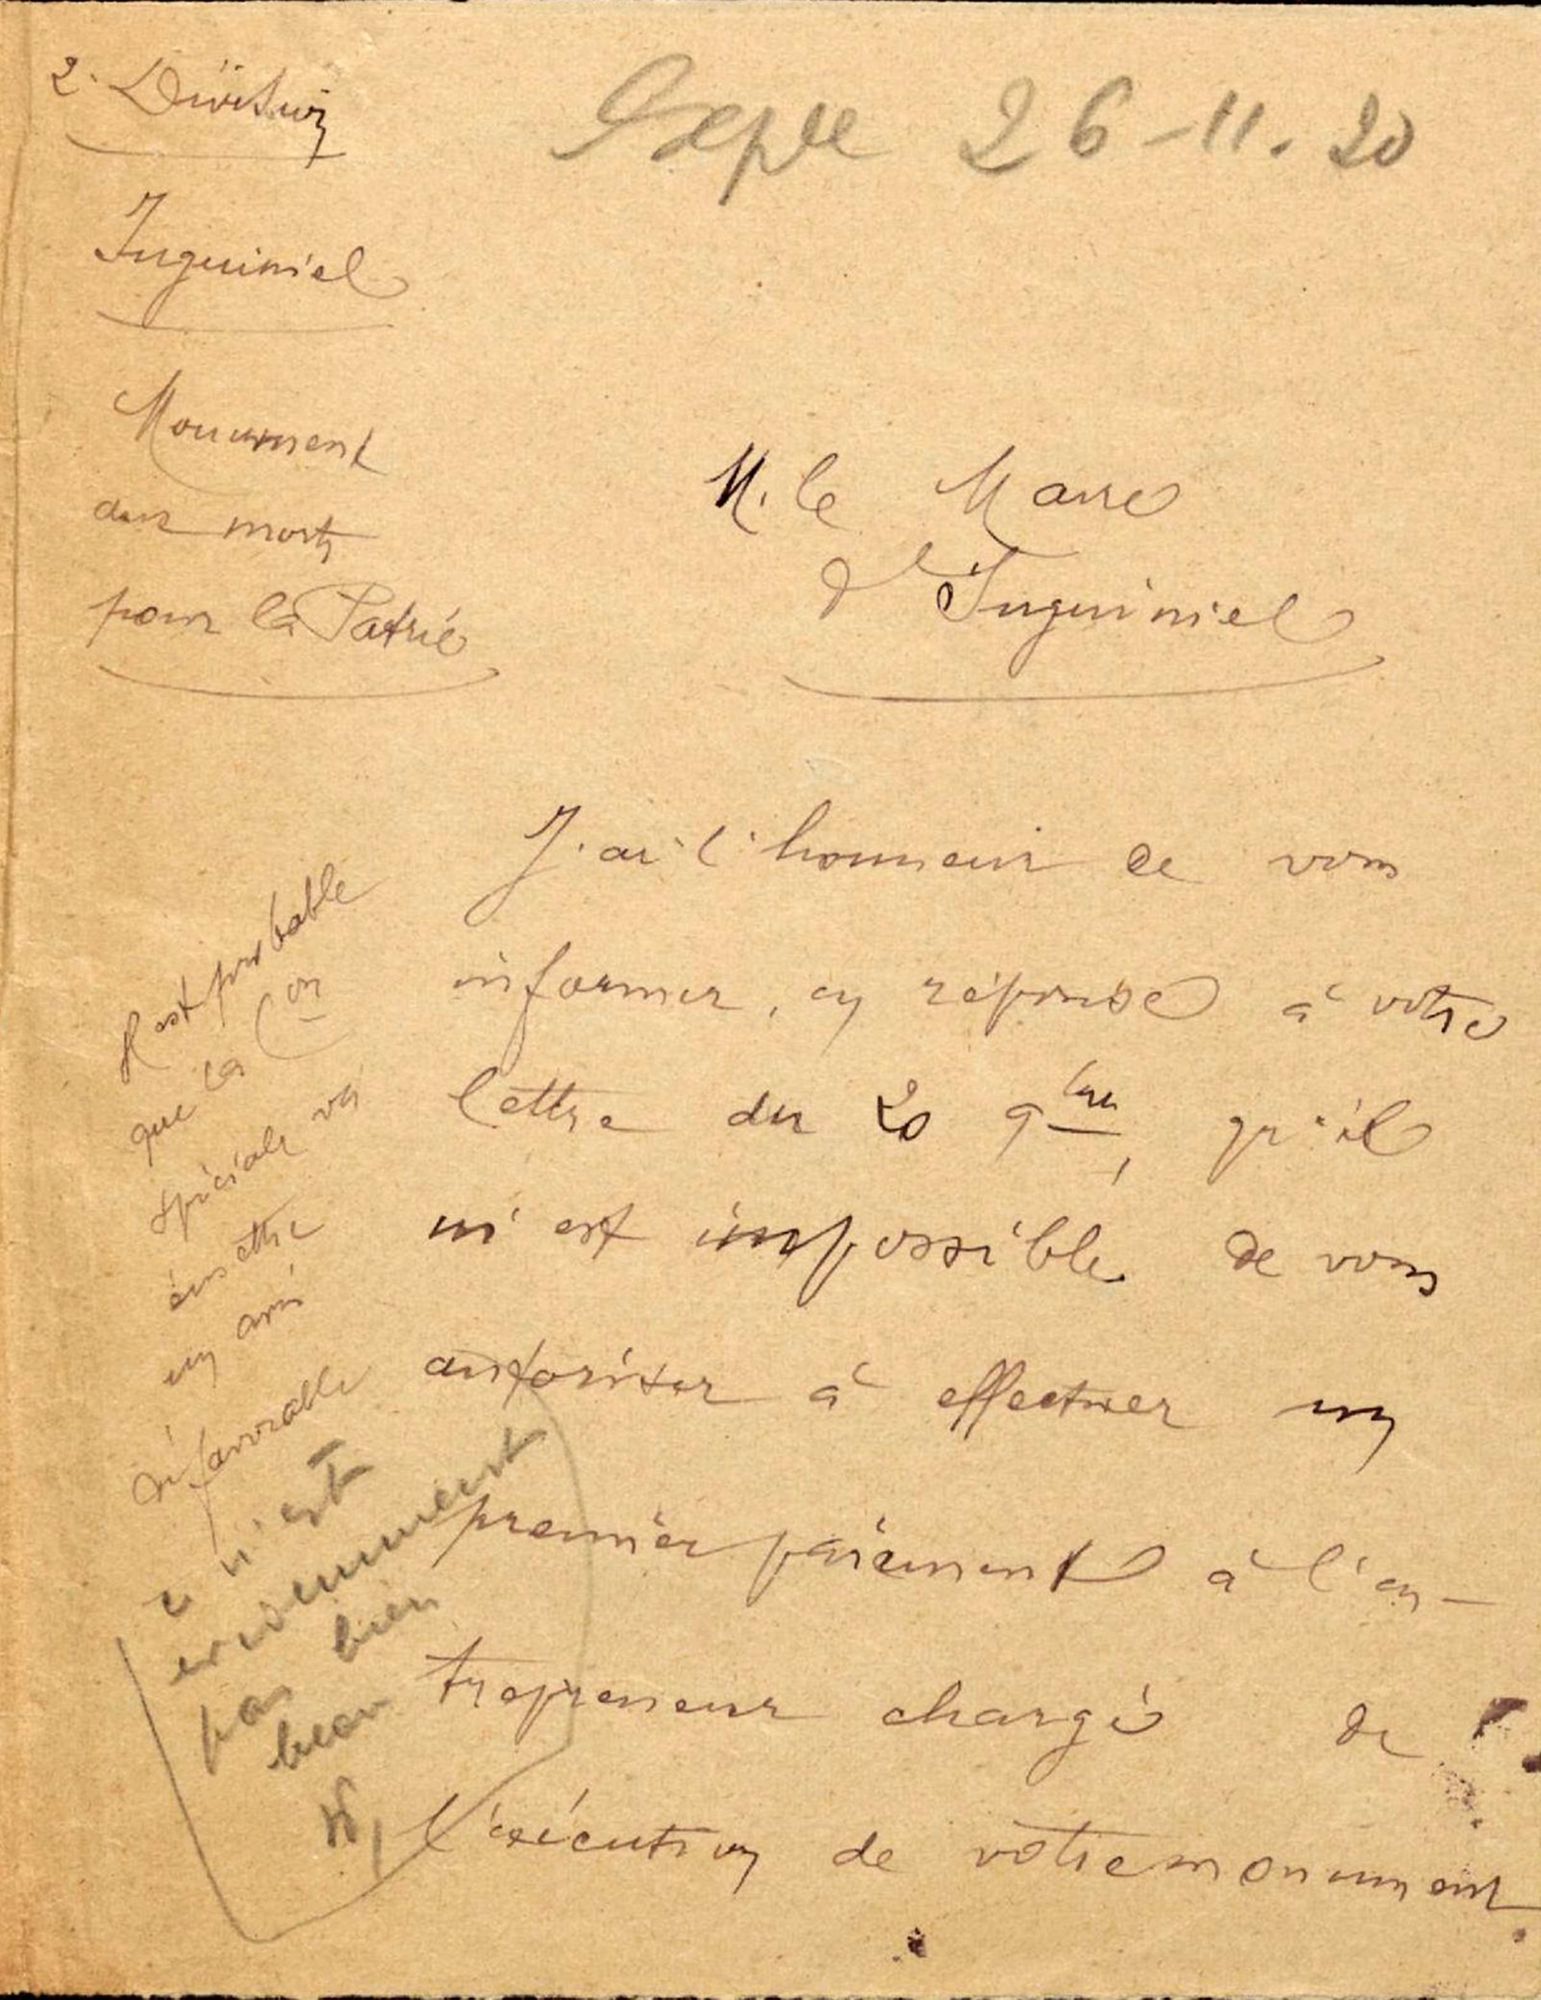 2. Division
Expre 26-11.20
Inguiniel
Monument
aux morts
pour la Patrie
M. le Maire
d'Inguiniel
J'ai l'honneur de vous
informer, en réponse à votre
lettre du 20 9bre, qu'il
m'est impossible de vous
autoriser à effectuer un
premier paiement à l'en-
trepreneur chargé de
l'exécution de votre monument
Il est probable
que la Con
spéciale va
émettre
un avis
défavorable
ce n'est
evidemment
pas bien
beau